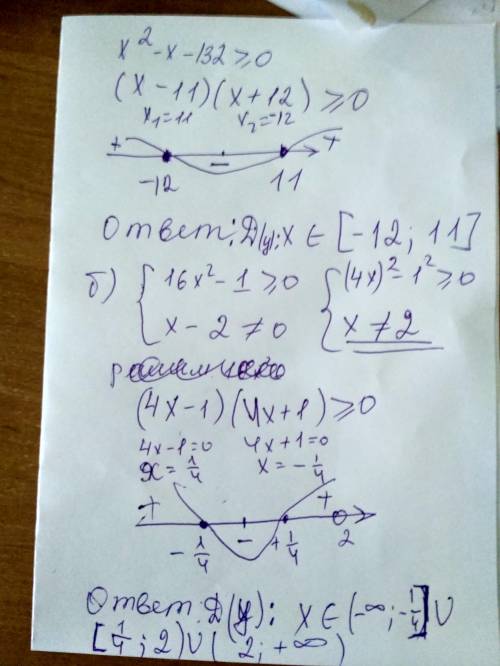 x² - x - 132 ≥ 0
(x - 11)(x + 12) ≥ 0
x₁ = 11 x₂ = -12
+ - +
-12 11
Ответ: Д(y): x ∈ [-12; 11]
б) { 16x² - 1 ≥ 0 { (4x)² - 1² ≥ 0
x - 2 ≠ 0 x ≠ 2
(4x - 1)(4x + 1) ≥ 0
4x - 1 = 0 4x + 1 = 0
x = 1/4 x = - 1/4
+ - +
- 1/4 + 1/4 2
Ответ: Д(y): x ∈ (-∞; -1/4] ∪
[1/4; 2) ∪ (2; +∞)